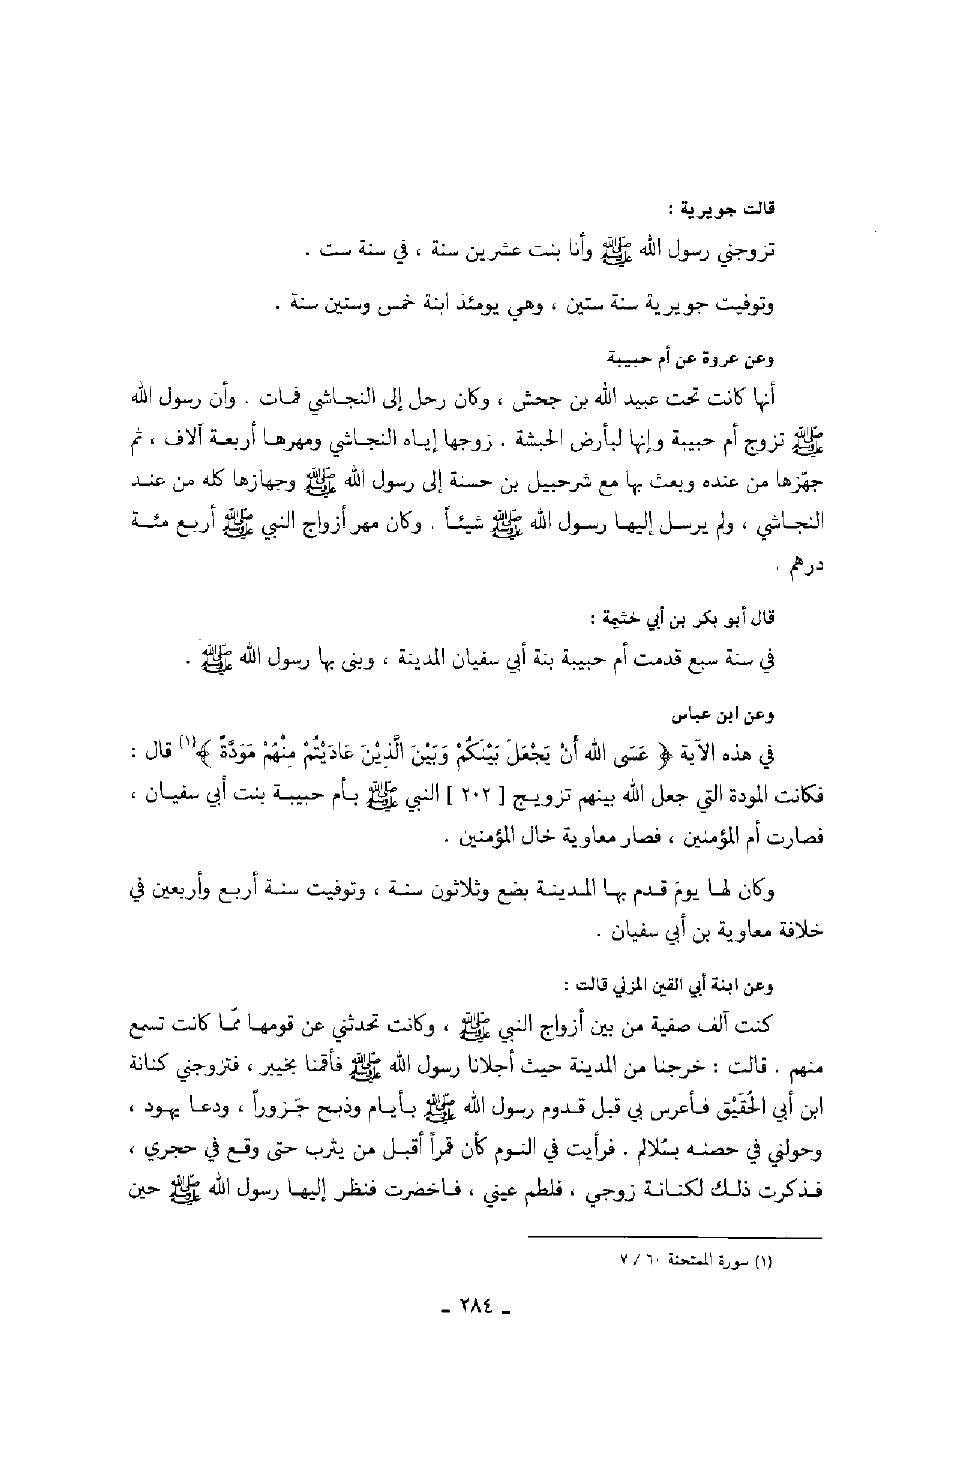 قالت جويرية :
تزوجني رسول الله ﷺ وأنا بنت عشرين سنة ، في سنة ست .
وتوفيت جويرية سنة ستين ، وهي يومئذ ابنة خمس وستين سنة .
وعن عروة عن أم حبيبة
أنها كانت تحت عبيد الله بن جحش ، وكان رحل إلى النجاشي فمات . وأن رسول الله
ﷺ تزوج أم حبيبة وإنها لبأرض الحبشة . زوجها إياه النجاشي ومهرها أربعة آلاف ، ثم
جهّزها من عنده وبعث بها مع شرحبيل بن حسنة إلى رسول الله ﷺ وجهازها كله من عند
النجاشي ، ولم يرسل إليها رسول الله ﷺ شيئاً . وكان مهر أزواج النبي ﷺ أربع مئة
درهم .
قال أبو بكر بن أبي خثيمة :
في سنة سبع قدمت أم حبيبة بنة أبي سفيان المدينة ، وبنى بها رسول الله ﷺ .
وعن ابن عباس
في هذه الآية ﴿ عَسَى الله أَنْ يَجْعَلَ بَيْنَكُمْ وَبَيْنَ الَّذِيْنَ عَادَيْتُمْ مِنْهُمْ مَوَدَّةً ﴾(١) قال :
فكانت المودة التي جعل الله بينهم تزويج [ ٢٠٢ ] النبي ﷺ بأم حبيبة بنت أبي سفيان ،
فصارت أم المؤمنين ، فصار معاوية خال المؤمنين .
وكان لها يومَ قدم بها المدينة بضع وثلاثون سنة ، وتوفيت سنة أربع وأربعين في
خلافة معاوية بن أبي سفيان .
وعن ابنة أبي القين المزني قالت :
كنت آلف صفية من بين أزواج النبي ﷺ ، وكانت تحدثني عن قومها ممّا كانت تسمع
منهم . قالت : خرجنا من المدينة حيث أجلانا رسول الله ﷺ فأقمنا بخيبر ، فتزوجني كنانة
ابن أبي الحُقَيْق فأعرس بي قبل قدوم رسول الله ﷺ بأيام وذبح جَزوراً ، ودعا يهود ،
وحولني في حصنه بسُلالم . فرأيت في النوم كأن قمراً أقبل من يثرب حتى وقع في حجري ،
فذكرت ذلك لكنانة زوجي ، فلطم عيني ، فاخضرت فنظر إليها رسول الله ﷺ حين
(١) سورة الممتحنة ٦٠ / ٧
ـ ٢٨٤ ـ